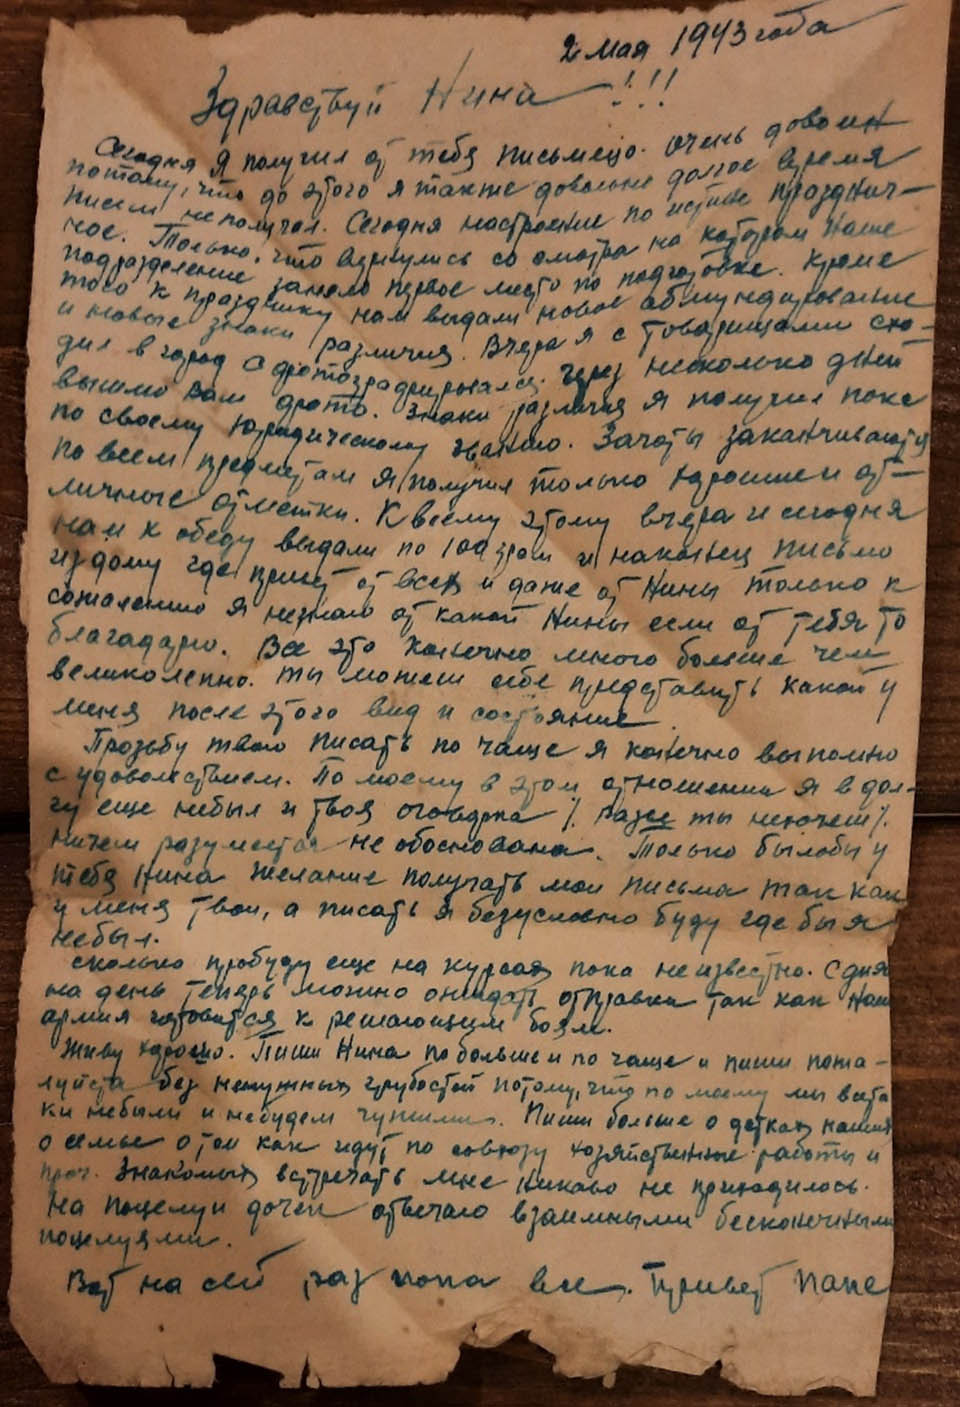 2 мая 1943 года
Здравствуй Нина !!!
Сегодня я получил от тебя письмецо. Очень доволен
потому, что до этого я также довольно долгое время
писем не получал. Сегодня настроение по истине празднич-
ное. Только, что вернулись со смотра на котором наше
подразделение заняло первое место по подготовке. Кроме
того к празднику нам выдали новое обмундирование
и новые знаки различия. Вчера я с товарищами схо-
дил в город сфотографировался. Через несколько дней
вышлю вам фото. Знаки различия я получил пока
по своему юридическому званию. Зачоты заканчиваются
по всем предметам я получил только хорошие и от-
личные отметки. К всему этому вчера и сегодня
нам к обеду выдали по 100 грам и наконец письмо
из дому где привет от всех и даже от Нины только к
сожалению я незнаю от какой Нины если от тебя то
благодарю. Все это конечно много больше чем
великолепно. Ты можеш себе представить какой у
меня после этого вид и состояние.
Прозьбу твою писать по чаще я конечно выполню
с удовольствием. По моему в этом отношении я в дол-
гу еще небыл и твоя оговорка /. разве ты нехочеш /.
ничем разумеется не обоснована. Только былобы у
тебя Нина желание получать мои письма так как
у меня твои, а писать я безусловно буду где бы я
небыл.
Сколько пробуду еще на курсах пока не известно. С дня
на день теперь можно ожидать отправки так как наша
армия готовится к решающим боям.
Живу хорошо. Пиши Нина по больше и по чаще и пиши пожа-
луйста без ненужных грубостей потому, что по моему мы всета
ки небыли и небудем чужими. Пиши больше о детках наших
о семье о том как идут по совхозу хозяйственные работы и
проч. Знакомых встречать мне никаво не приходилось.
На поцелуи дочек отвечаю взаимными бесконечными
поцелуями.
Вот на сей раз пока все. Привет папе